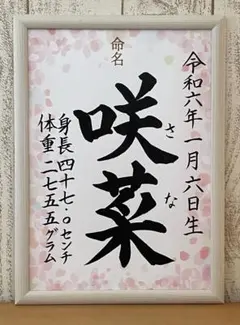 令和六年一月六日生
命名
咲菜
さな
身長四十七.0センチ
体重二七五五グラム